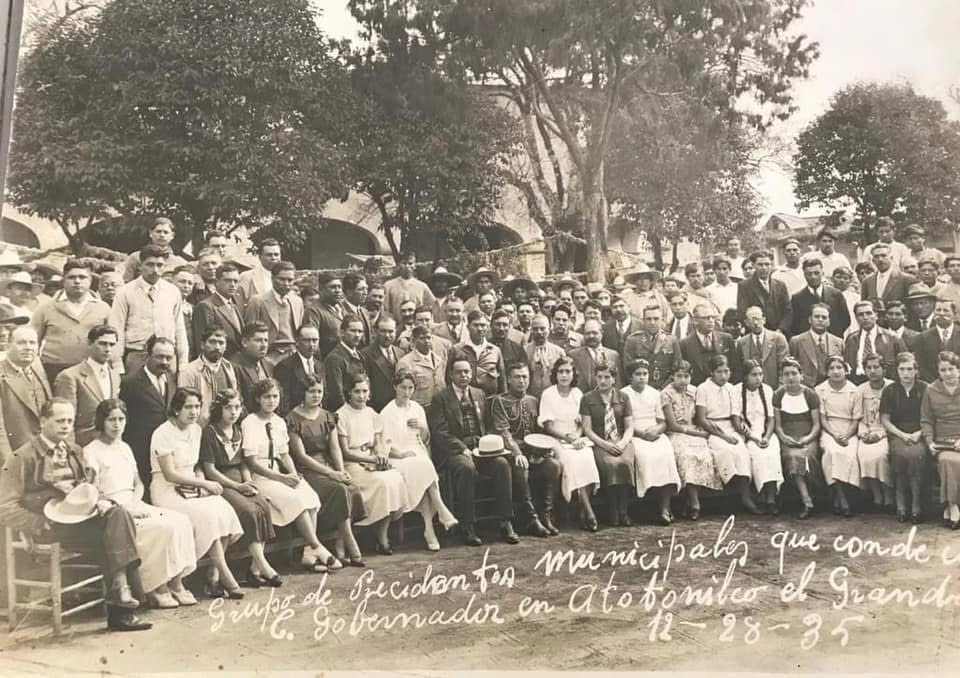 Grupo de Precidentes Municipales que conde c
C. Gobernador en Atotonilco el Grande
12-28-35